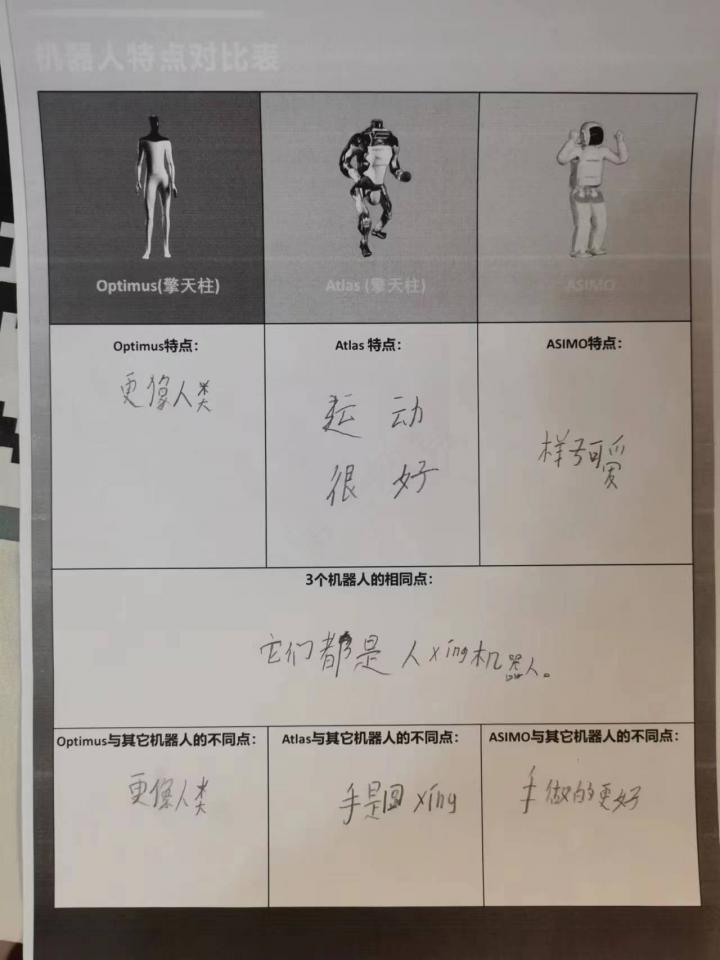 机器人特点对比表
Optimus(擎天柱)
Atlas (擎天柱)
ASIMO
Optimus特点：
Atlas 特点：
ASIMO特点：
更像人类
运动
很好
样子可爱
3个机器人的相同点：
它们都是人xíng机器人。
Optimus与其它机器人的不同点：
Atlas与其它机器人的不同点：
ASIMO与其它机器人的不同点：
更像人类
手是圆xíng
手做的更好